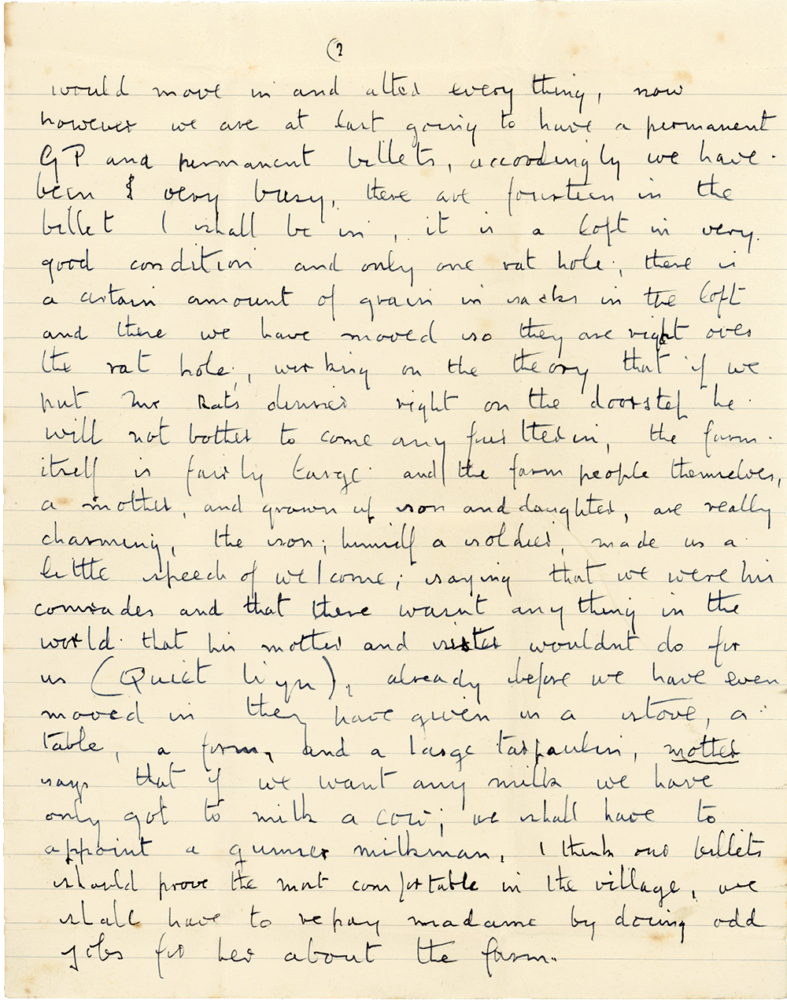 (2)
would move in and alter every thing, now
however we are at last going to have a permanent
GP and permanent billets, accordingly we have
been very busy, there are fourteen in the
billet I shall be in, it is a loft in very
good condition and only one rat hole, there is
a certain amount of grain in sacks in the loft
and there we have moved so they are right over
the rat hole, working on the theory that if we
put Mr Rats dinner right on the doorstep he
will not bother to come any further in, the farm
itself is fairly large and the farm people themselves,
a mother, and grown up son and daughter, are really
charming, the son, himself a soldier, made us a
little speech of welcome; saying that we were his
comrades and that there wasnt any thing in the
world that his mother and sister wouldnt do for
us (Quiet Lyn), already before we have even
moved in they have given us a stove, a
table, a form, and a large tarpaulin, mother
says that if we want any milk we have
only got to milk a cow; we shall have to
appoint a gunner milkman, I think our billets
should prove the most comfortable in the village, we
shall have to repay madame by doing odd
jobs for her about the farm.